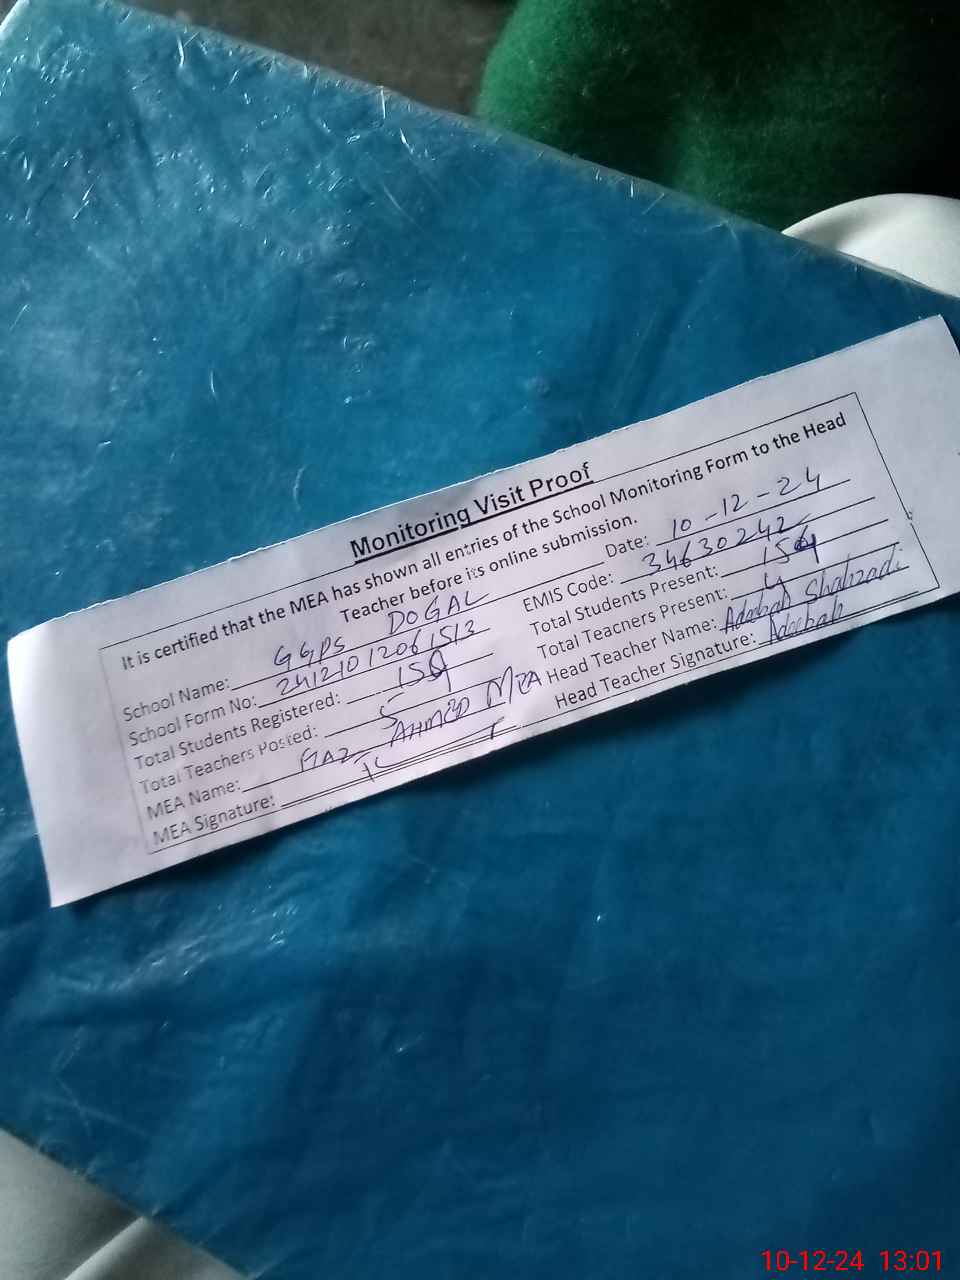 Monitoring Visit Proof
It is certified that the MEA has shown all entries of the School Monitoring Form to the Head
Teacher before its online submission.
Date: 10-12-24
School Name: GGPS DOGAL
EMIS Code: 34630242
School Form No: 24121012061513
Total Students Present: 154
Total Students Registered: 159
Total Teachers Present: 4
Total Teachers Posted: 5
Head Teacher Name: Adeebah Shahzadi
MEA Name: AHMED MEA
Head Teacher Signature: Adeebah
MEA Signature:
10-12-24 13:01